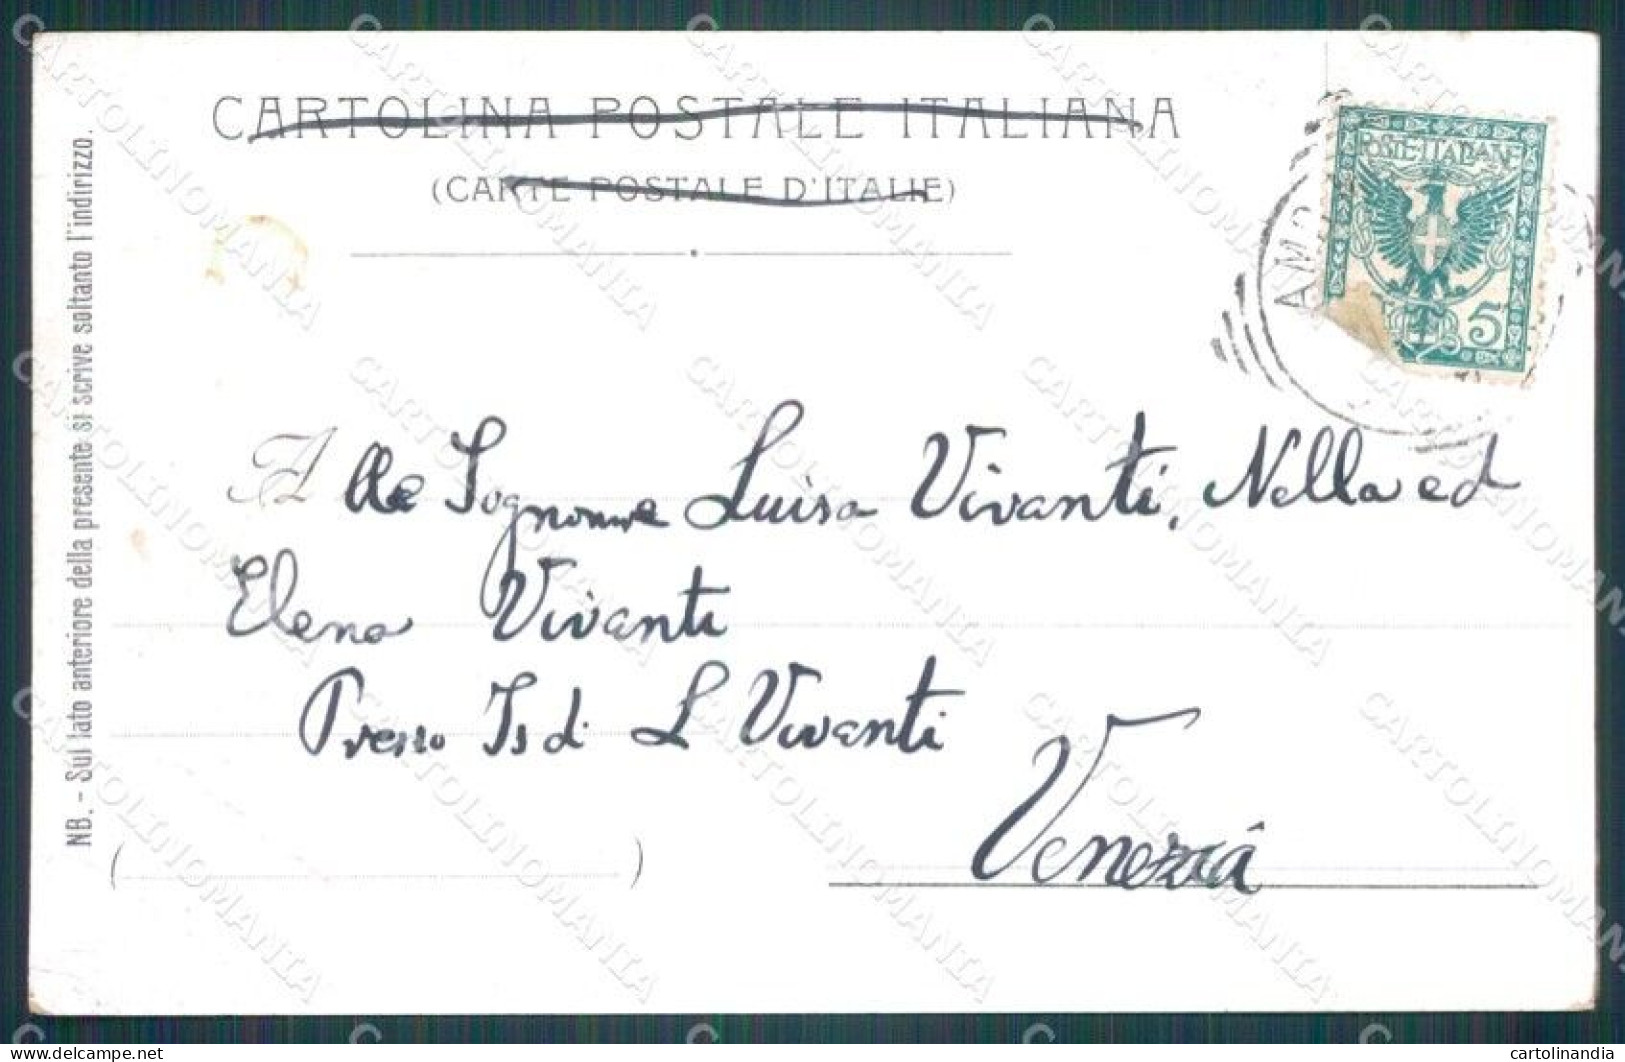 CARTOLINA POSTALE ITALIANA
(CARTE POSTALE D'ITALIE)
POSTE ITALIANE
5
AM
NB. - Sul lato anteriore della presente si scrive soltanto l'indirizzo.
Alle Signorine Luisa Vivanti, Nella ed
Elena Vivanti
Presso di L Vivanti
Venezia
CARTOLINOMANIA
www.delcampe.net
cartolinandia